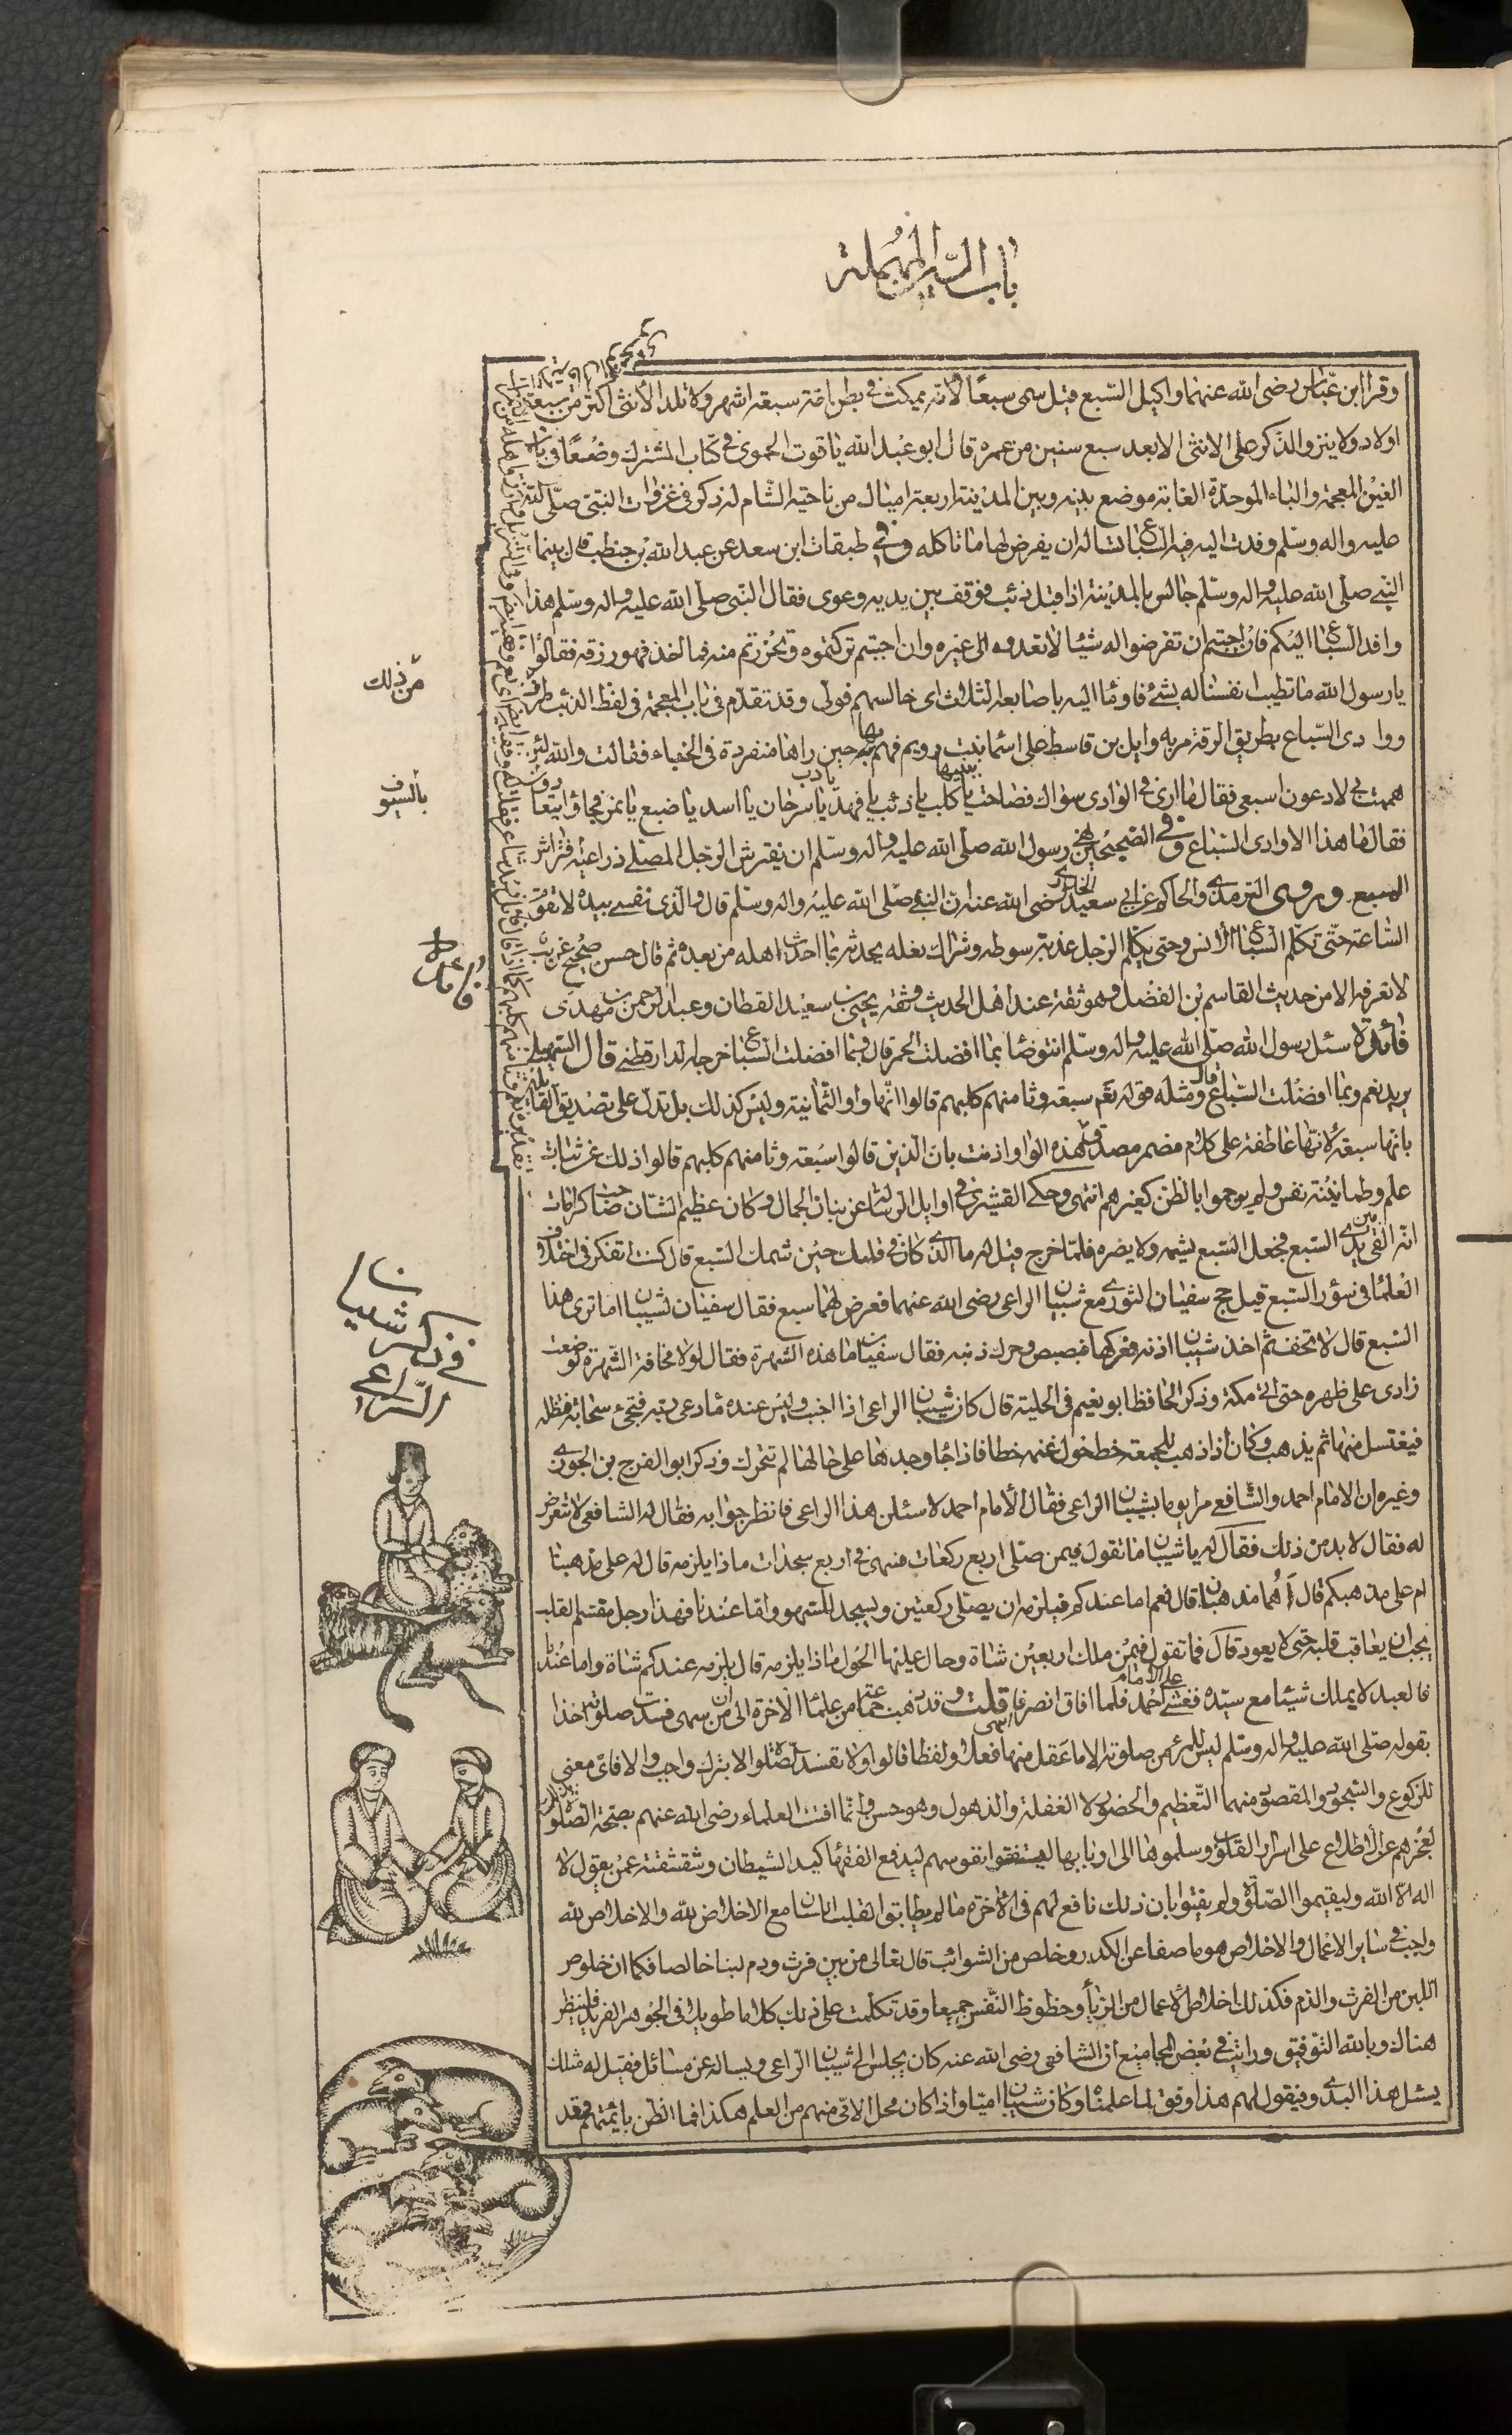 باب السين المهملة
وقرا ابن عباس رضى الله عنهما واكيل السبع قيل سمى سبعا لانه يمكث فى بطن امه سبعة اشهر ولا تلد الانثى اكثر من سبعة
اولاد ولا ينزو الذكر على الانثى الا بعد سبع سنين من عمره قال ابو عبد الله ياقوت الحموى فى كتاب المشترك وضعا فى باب
الغين المعجمة والباء الموحدة الغابة موضع بينه وبين المدينة اربعة اميال من ناحية الشام له ذكر فى غزوات النبى صلى الله
عليه واله وسلم وفدت اليه فيه السباع تساله ان يفرض لها ما تاكله وفى طبقات ابن سعد عن عبد الله بن حنطب قال بينما
النبى صلى الله عليه واله وسلم جالس بالمدينة اذا قبل ذئب فوقف بين يديه وعوى فقال النبى صلى الله عليه واله وسلم هذا
وافد السباع اليكم فان احببتم ان تفرضوا له شيئا لا تعدوه الى غيره وان احببتم تركتموه وتحرزتم منه فما اخذ فهو رزقه فقالوا
يا رسول الله ما تطيب انفسنا له بشئ فاومأ اليه باصابعه الثلاث اى خالسهم فولى وقد تقدم فى باب المعجمة فى لفظ الذئب طرف
من ذلك
ووادى السباع بطريق الرقة مر به وايل بن قاسط على اسما بنت رويم فهم بها حين راها منفردة فى الخباء فقالت والله لئن
هممت بى لادعون اسبعى فقال ما ارى فى الوادى سواك فصاحت ببنيها يا كلب يا ذئب يا فهد يا دب يا سرحان يا اسد يا ضبع يا نمر فجاؤا يتعادون
بالسيوف
فقال ما هذا الا وادى السباع وفى الصحيحين نهى رسول الله صلى الله عليه واله وسلم ان يفترش الرجل المصلى ذراعيه فتراش
السبع وروى الترمذى والحاكم عن ابى سعيد الخدرى رضى الله عنه ان النبى صلى الله عليه واله وسلم قال والذى نفسى بيده لا تقوم
الساعة حتى تكلم السباع الانس وحتى يكلم الرجل عذبة سوطه وشراك نعله يحدثه بما احدث اهله من بعده ثم قال حسن صحيح غريب
لا نعرفه الا من حديث القاسم بن الفضل وهو ثقة عند اهل الحديث وثقه يحيى بن سعيد القطان وعبد الرحمن بن مهدى
فائدة
فائدة سئل رسول الله صلى الله عليه واله وسلم انتوضا بما افضلت الحمر قال وبما افضلت السباع اخرجه الدارقطنى قال السهيلى
يريد نعم وبما افضلت السباع قال ومثله قوله تعم سبعة وثامنهم كلبهم قالوا انها واو الثمانية وليس كذلك بل تدل على تصديق القائلين
بانها سبعة لانها عاطفة على كلام مضمر مصدق هذه الواو اذ نت بان الذين قالوا سبعة وثامنهم كلبهم قالوا ذلك عن ثبات
علم وطمانينة نفس ولم يرجموا بالظن كغيرهم انتهى وحكى القشيرى فى اوايل الرسالة عن بنان الجمال وكان عظيم الشان صاحب كرامات
انه القى بين يدى السبع فجعل السبع يشمه ولا يضره فلما خرج قيل له ما الذى كان فى قلبك حين شمك السبع قال كنت اتفكر فى اختلاف
العلما فى سؤر السبع قيل حج سفيان الثورى مع شيبان الراعى رضى الله عنهما فعرض لهما سبع فقال سفيان لشيبان اما ترى هذا
فى ذكر شيبان الراعى
السبع قال لا تخف ثم اخذ شيبان اذنه فعركها فبصبص وحرك ذنبه فقال سفيان ما هذه الشهرة فقال لولا مخافة الشهرة لوضعت
زادى على ظهره حتى اتى مكة وذكر الحافظ ابو نعيم فى الحلية قال كان شيبان الراعى اذا اجنب وليس عنده ماء دعى ربه فتجىء سحابة فتظله
فيغتسل منها ثم يذهب وكان اذا ذهب للجمعة خط حول غنمه خطا فاذا جا وجدها على حالها لم تتحرك وذكر ابو الفرج بن الجوزى
وغيره ان الامام احمد والشافعى مرا يوما بشيبان الراعى فقال الامام احمد لاسئلن هذا الراعى فانظر جوابه فقال له الشافعى لا تتعرض
له فقال لا بد من ذلك فقال له يا شيبان ما تقول فيمن صلى اربع ركعات فسهى فى اربع سجدات ماذا يلزمه قال له على مذهبنا
ام على مذهبكم قال أهما مذهبان قال نعم اما عندكم فيلزمه ان يصلى ركعتين ويسجد للسهو واما عندنا فهذا رجل مقسم القلب
يجب ان يعاقب قلبه حتى لا يعود قال فما تقول فيمن ملك اربعين شاة وحال عليها الحول ماذا يلزمه قال يلزمه عندكم شاة واما عندنا
فالعبد لا يملك شيئا مع سيده فغشى على الامام احمد فلما افاق انصرفا قلت وقد ذهب جماعة من علما الاخرة الى ان من سهى فسدت صلوته اخذا
بقوله صلى الله عليه واله وسلم ليس للمرء من صلوته الا ما عقل منها فعلا ولفظا قالوا ولا تفسد الصلوة الا بترك واجب والا فاى معنى
للركوع والسجود والمقصود منهما التعظيم والحضور لا الغفلة والذهول وهو حسن وانما افتت العلماء رضى الله عنهم بصحة الصلوة
لعجزهم عن الاطلاع على اسرار القلوب وسلموها الى اربابها ليستفتوا نفوسهم ليدفع الفقها كيد الشيطان وشقشقته عمن يقول لا
اله الا الله وليقيموا الصلوة ولم يفتوا بان ذلك نافع لهم فى الاخرة ما لم يطابقوا القلب اللسان مع الاخلاص لله والاخلاص لله
واجب فى ساير الاعمال والاخلاص هو ما صفا عن الكدر وخلص من الشوائب قال تعالى من بين فرث ودم لبنا خالصا فكما ان خلوص
اللبن من الفرث والدم فكذلك اخلاص الاعمال من الريا وحظوظ النفس جميعا وقد تكلمت على ذلك كلاما طويلا فى الجوهر الفريد فلينظر
هناك وبالله التوفيق ورايت فى بعض المجاميع ان الشافعى رضى الله عنه كان يجلس الى شيبان الراعى ويساله عن مسائل فقيل له مثلك
يسئل هذا البدوى فيقول لهم هذا وفق لما علمناه وكان شيبان اميا واذا كان محل الامى منهم من العلم هكذا فما الظن بائمتهم فقد